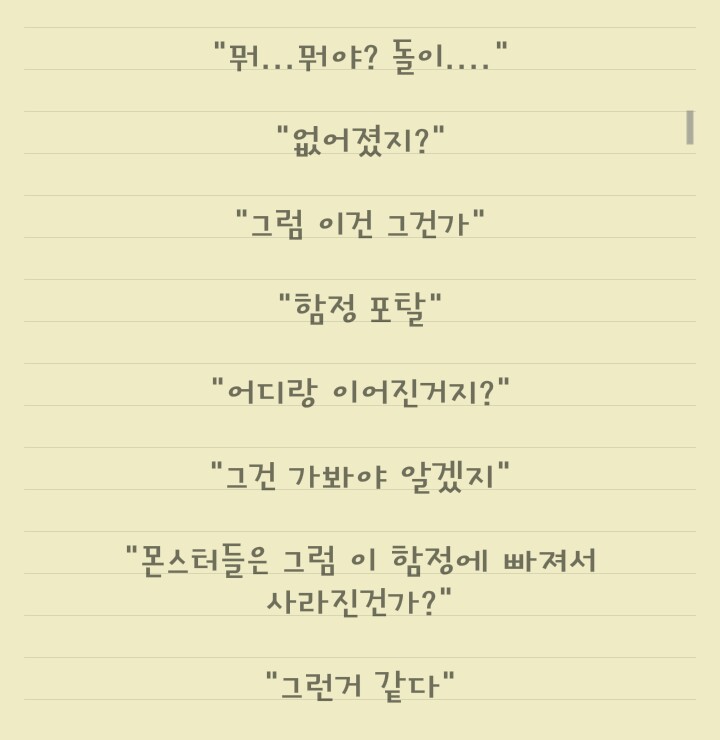 "뭐...뭐야? 돌이...."
"없어졌지?"
"그럼 이건 그건가"
"함정 포탈"
"어디랑 이어진거지?"
"그건 가봐야 알겠지"
"몬스터들은 그럼 이 함정에 빠져서
사라진건가?"
"그런거 같다"